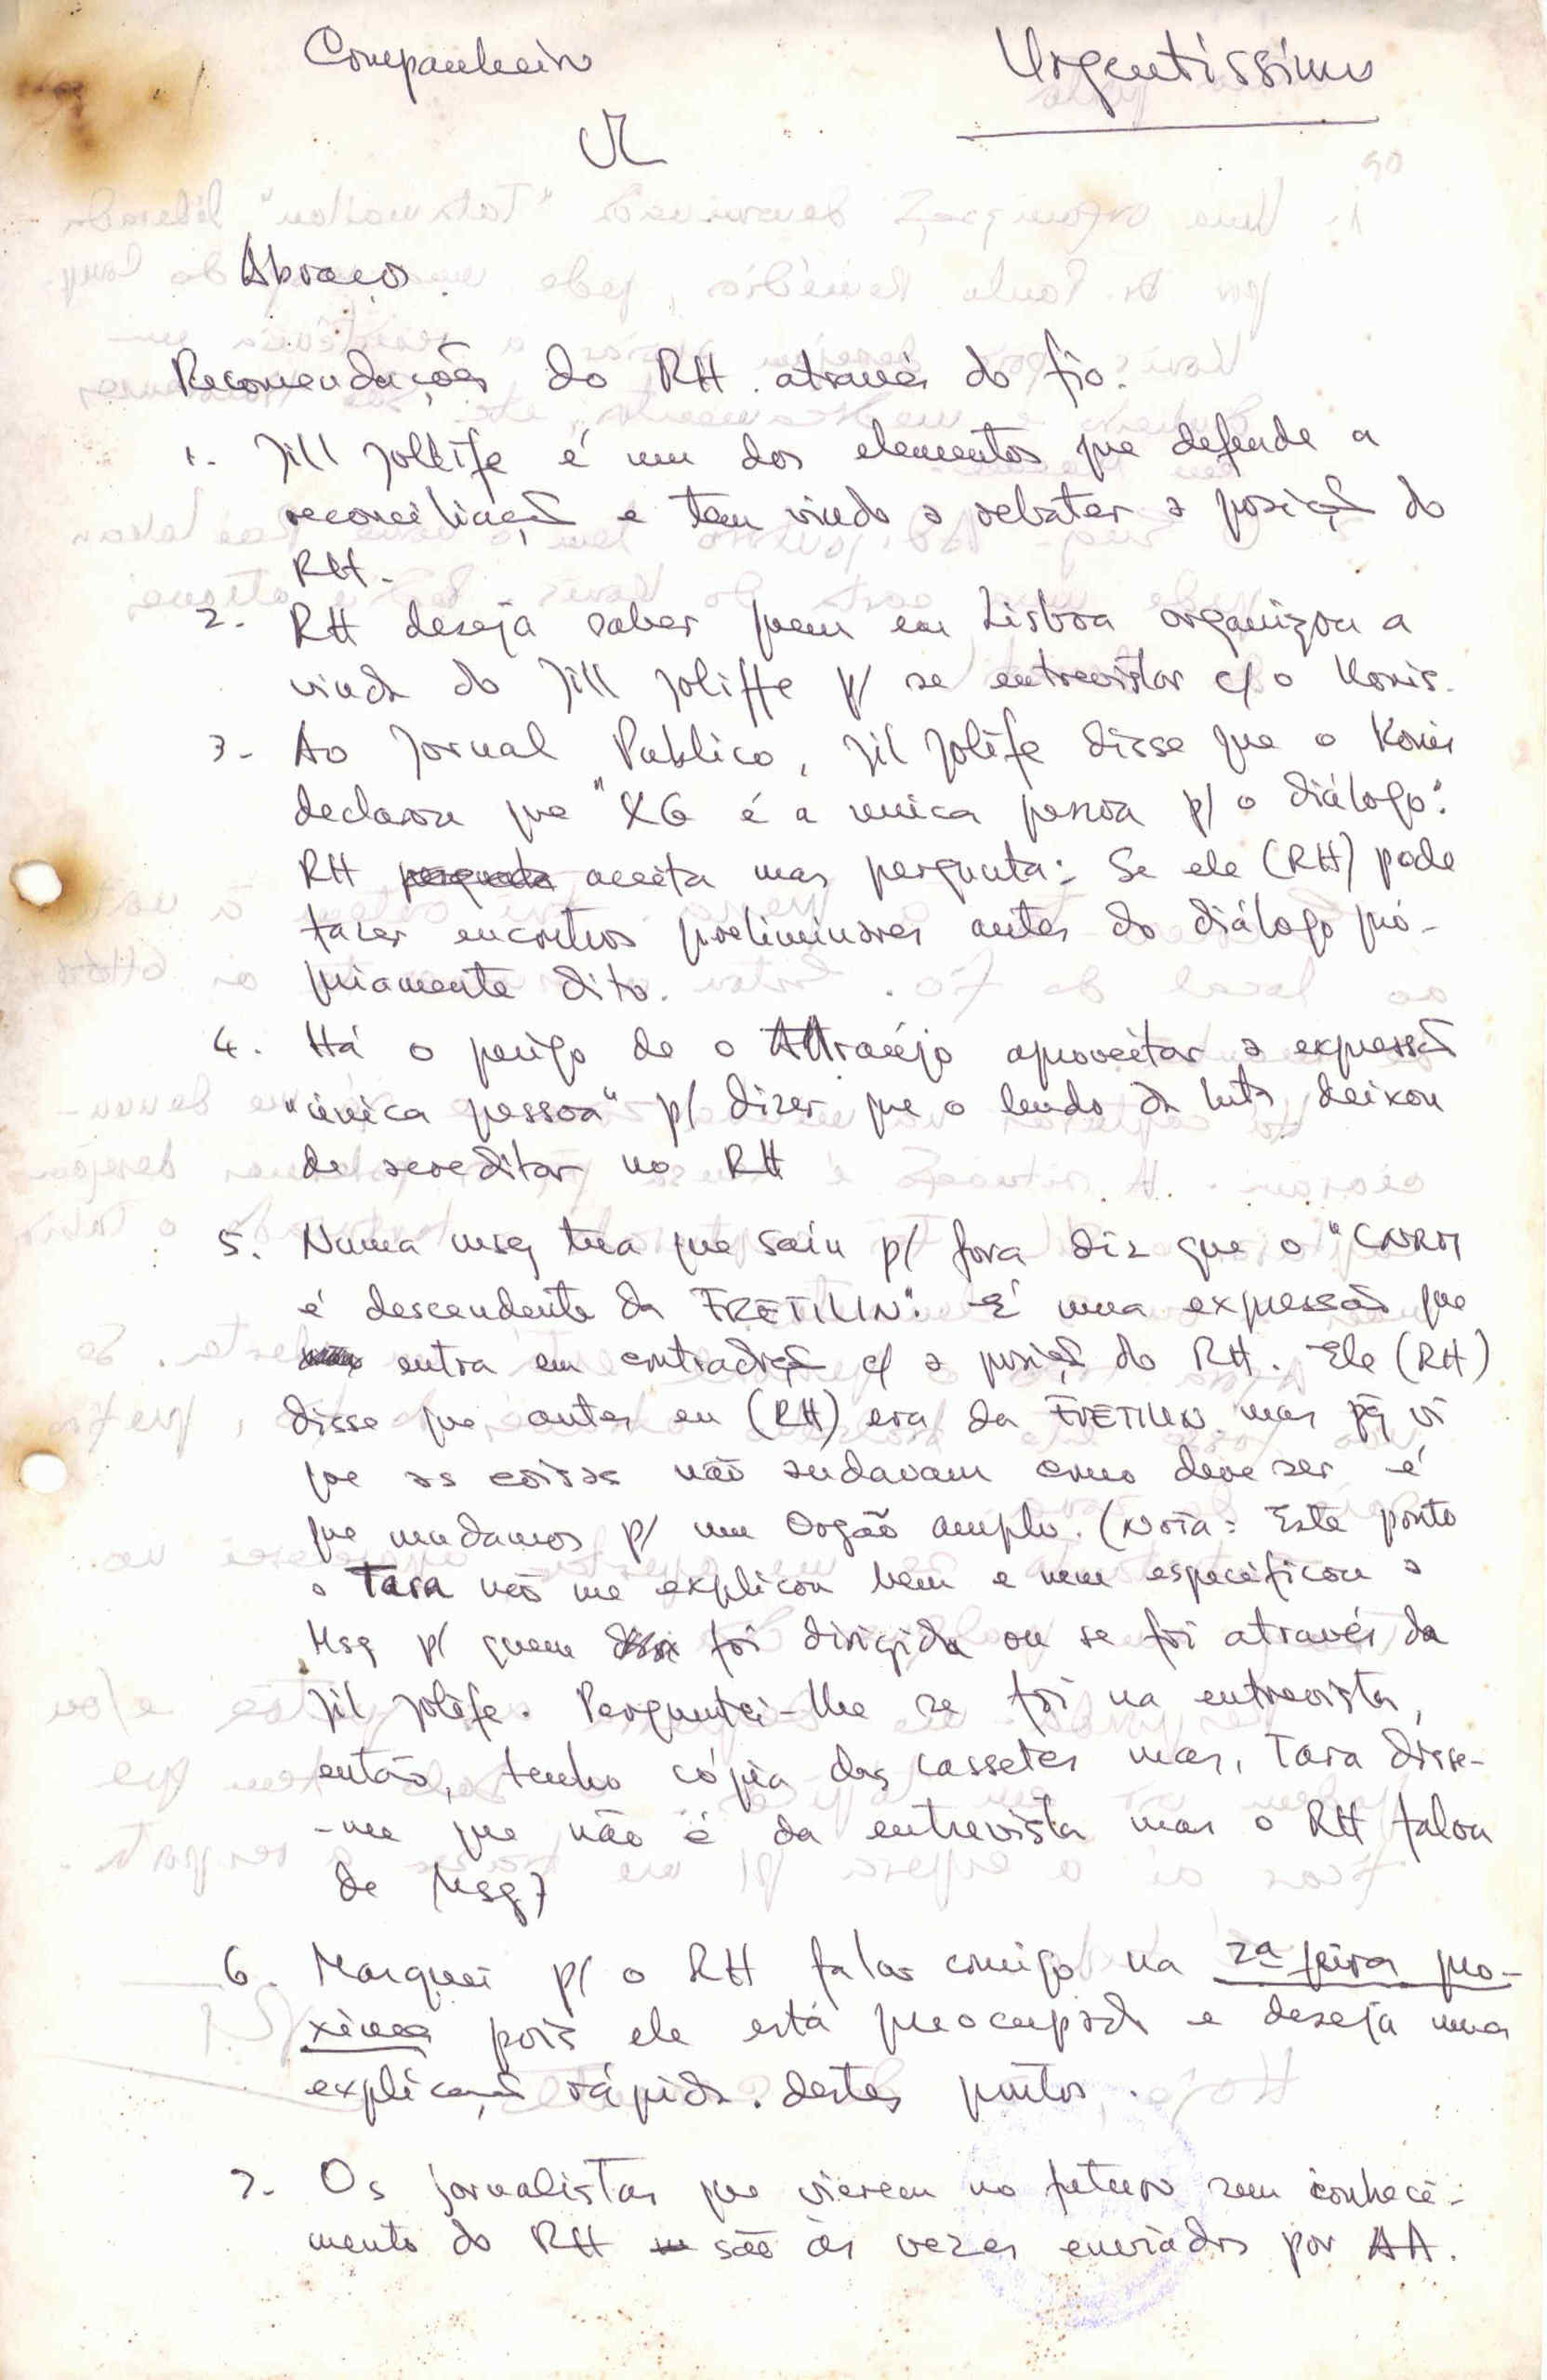 Companheiro
Urgentíssimo
Abraços.
Recomendações do RH através do fio.
1. Jill Jollife é um dos elementos que defende a
reconciliação e tem vindo a rebater a posição do
RH.
2. RH deseja saber quem em Lisboa organizou a
vinda do Jill Joliffe p/ se entrevistar c/ o Konis.
3- Ao Jornal Publico, Jil Jolife disse que o Konis
declarou que "XG é a unica pessoa p/ o diálogo".
RH aceita mas pergunta: Se ele (RH) pode
fazer encontros preliminares antes do diálogo pró-
priamente dito.
4. Há o perigo de o Araújo aproveitar a expressão
"única pessoa" p/ dizer que o leader da luta deixou
de acreditar no RH
5. Numa msg tua que saíu p/ fora diz que o "CNRM
é descendente da FRETILIN". É uma expressão que
entra em contradição c/ a posição do RH. Ele (RH)
disse que antes eu (RH) era da FRETILIN mas pq vi
que as coisas não andavam como deve ser é
que mudamos p/ um Orgão amplo. (Nota: Este ponto
o Tara não me explicou bem e nem especificou a
Msg p/ quem foi dirigida ou se foi através da
Jil Jolife. Perguntei-lhe se foi na entrevista,
então, tenho cópia das cassetes mas, Tara disse-
-me que não é da entrevista mas o RH falou
de Msg)
6. Marquei p/ o RH falar comigo na 2ª feira pro-
xima pois ele está preocupado e deseja uma
explicação rápida destes pontos.
7- Os jornalistas que vierem no futuro sem conheci-
mento do RH são às vezes enviados por AA.